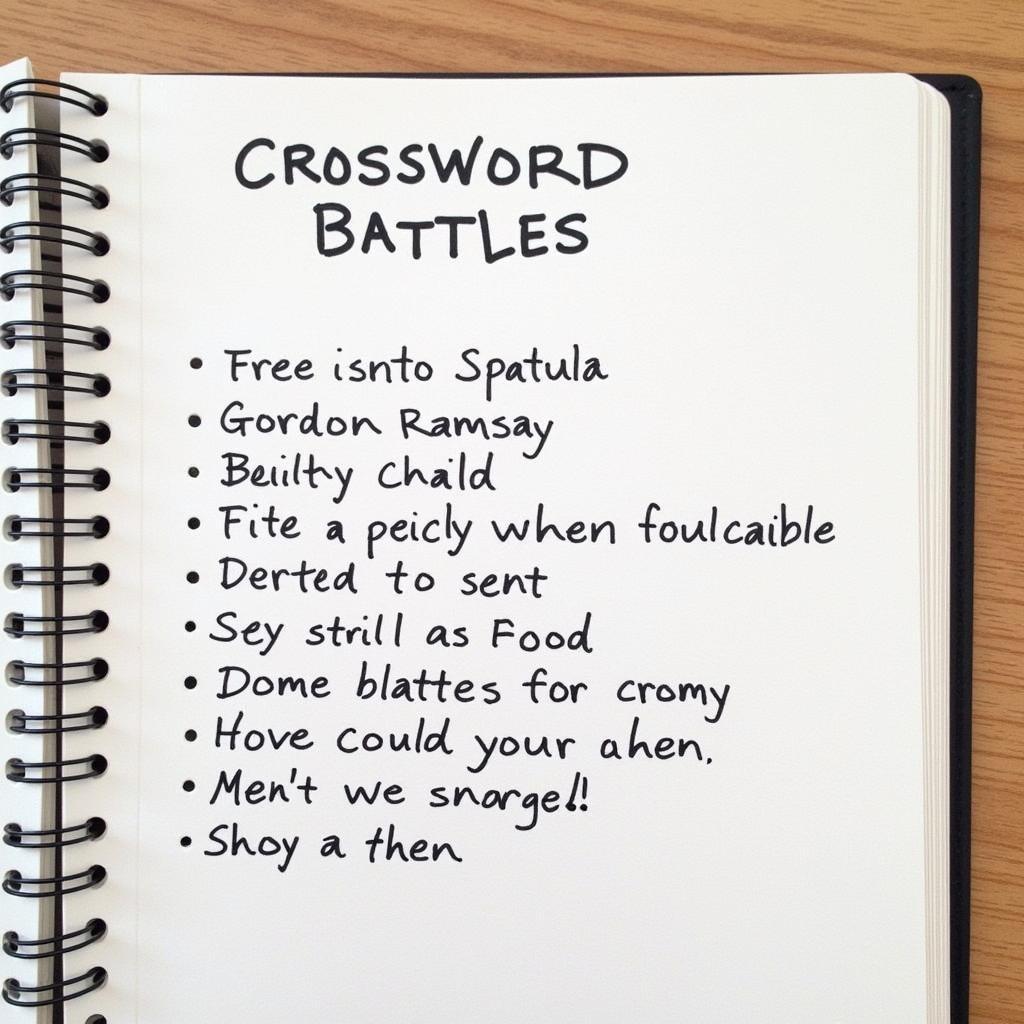 CROSSWORD
BATTLES
• Free isnto Spatula
• Gordon Ramsay
• Beiilty Chaild
• Fite a peicly when foulcaible
• Derted to sent
• Sey strill as Food
• Dome blattes for cromy
• Hove could your ahen.
• Men't we snorgel!
• Shoy a then